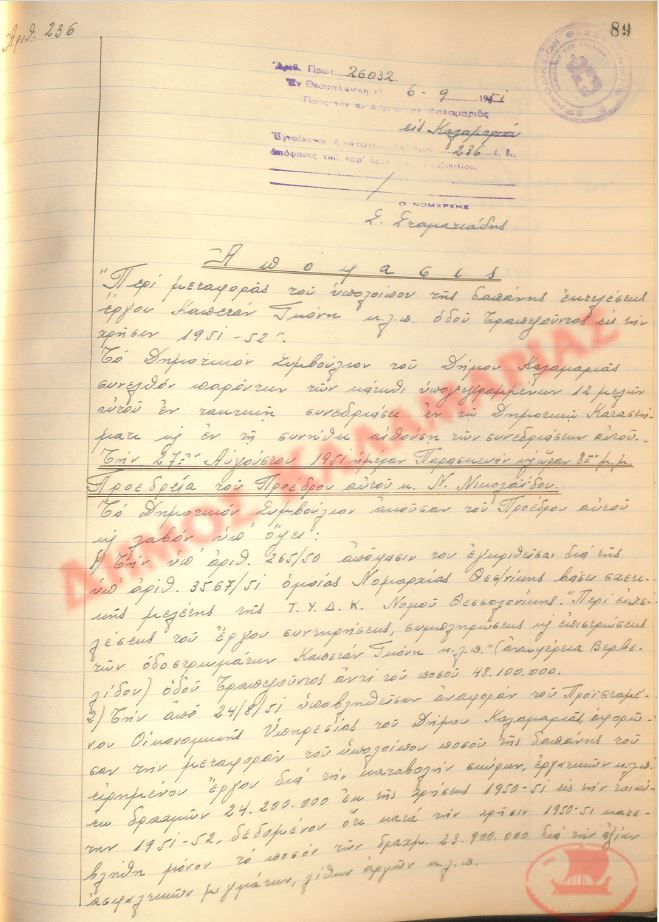 Αριθ. 236
89
Αριθ. Πρωτ. 26032
Εν Θεσσαλονίκη τη 6-9 1951
Προς τον κ. Δήμαρχον Καλαμαριάς
εις Καλαμαριά
Εγκρίνεται η 236
απόφασις του παρ' Συμβουλίου.
Ο ΝΟΜΑΡΧΗΣ
Σ. Σταματιάδης
Απόφασις
"Περί μεταφοράς του υπολοίπου της δαπάνης εκτελέσεως
έργου Καπετάν Γκόνη κ.λ.π. οδού Τραπεζούντος εις την
χρήσιν 1951-52".
Το Δημοτικόν Συμβούλιον του Δήμου Καλαμαριάς
συνελθόν παρόντων των κάτωθι υπογεγραμμένων 12 μελών
αυτού εν τακτική συνεδριάσει εν τω Δημοτικώ Καταστή-
ματι κ' εν τη συνήθει αιθούση των συνεδριάσεων αυτού.
Την 27ην Αυγούστου 1951 ημέραν Παρασκευήν κ' ώραν μ.μ.
Προεδρεία του Προέδρου αυτού κ. Ν. Νικολαΐδου.
Το Δημοτικόν Συμβούλιον ακούσαν του Προέδρου αυτού
κ' λαβόν υπ' όψει:
1) Την υπ' αριθ. 265/50 απόφασιν του εγκριθείσαν διά της
υπ' αριθ. 3567/51 ομοίας Νομαρχίας Θεσ/νίκης βάσει σχετι-
κής μελέτης της Τ.Υ.Δ.Κ. Νομού Θεσσαλονίκης "Περί εκτε-
λέσεως του έργου συντηρήσεως, συμπληρώσεως κ' επιστρώσεως
των οδοστρωμάτων Καπετάν Γκόνη κ.λ.π." (αναγέρεια Βερβε-
λίδου) οδού Τραπεζούντος αντί του ποσού 48.100.000.
2) Την από 24/8/51 υποβληθείσαν αναφοράν του Προϊσταμέ-
νου Οικονομικής Υπηρεσίας του Δήμου Καλαμαριάς αφορώ-
σαν την μεταφοράν του υπολοίπου ποσού της δαπάνης του
ειρημένου έργου διά την καταβολήν σκύρων, εργατικών κ.λ.π.
εκ δραχμών 24.200.000 εκ της χρήσεως 1950-51 εις την τοιαύ-
την 1951-52, δεδομένου ότι κατά την χρήσιν 1950-51 κατε-
βλήθη μόνον το ποσόν των δραχμ. 23.900.000 διά την αξίαν
ασφαλτικών μιγμάτων, λίθων αργών κ.λ.π.
ΔΗΜΟΣ ΚΑΛΑΜΑΡΙΑΣ